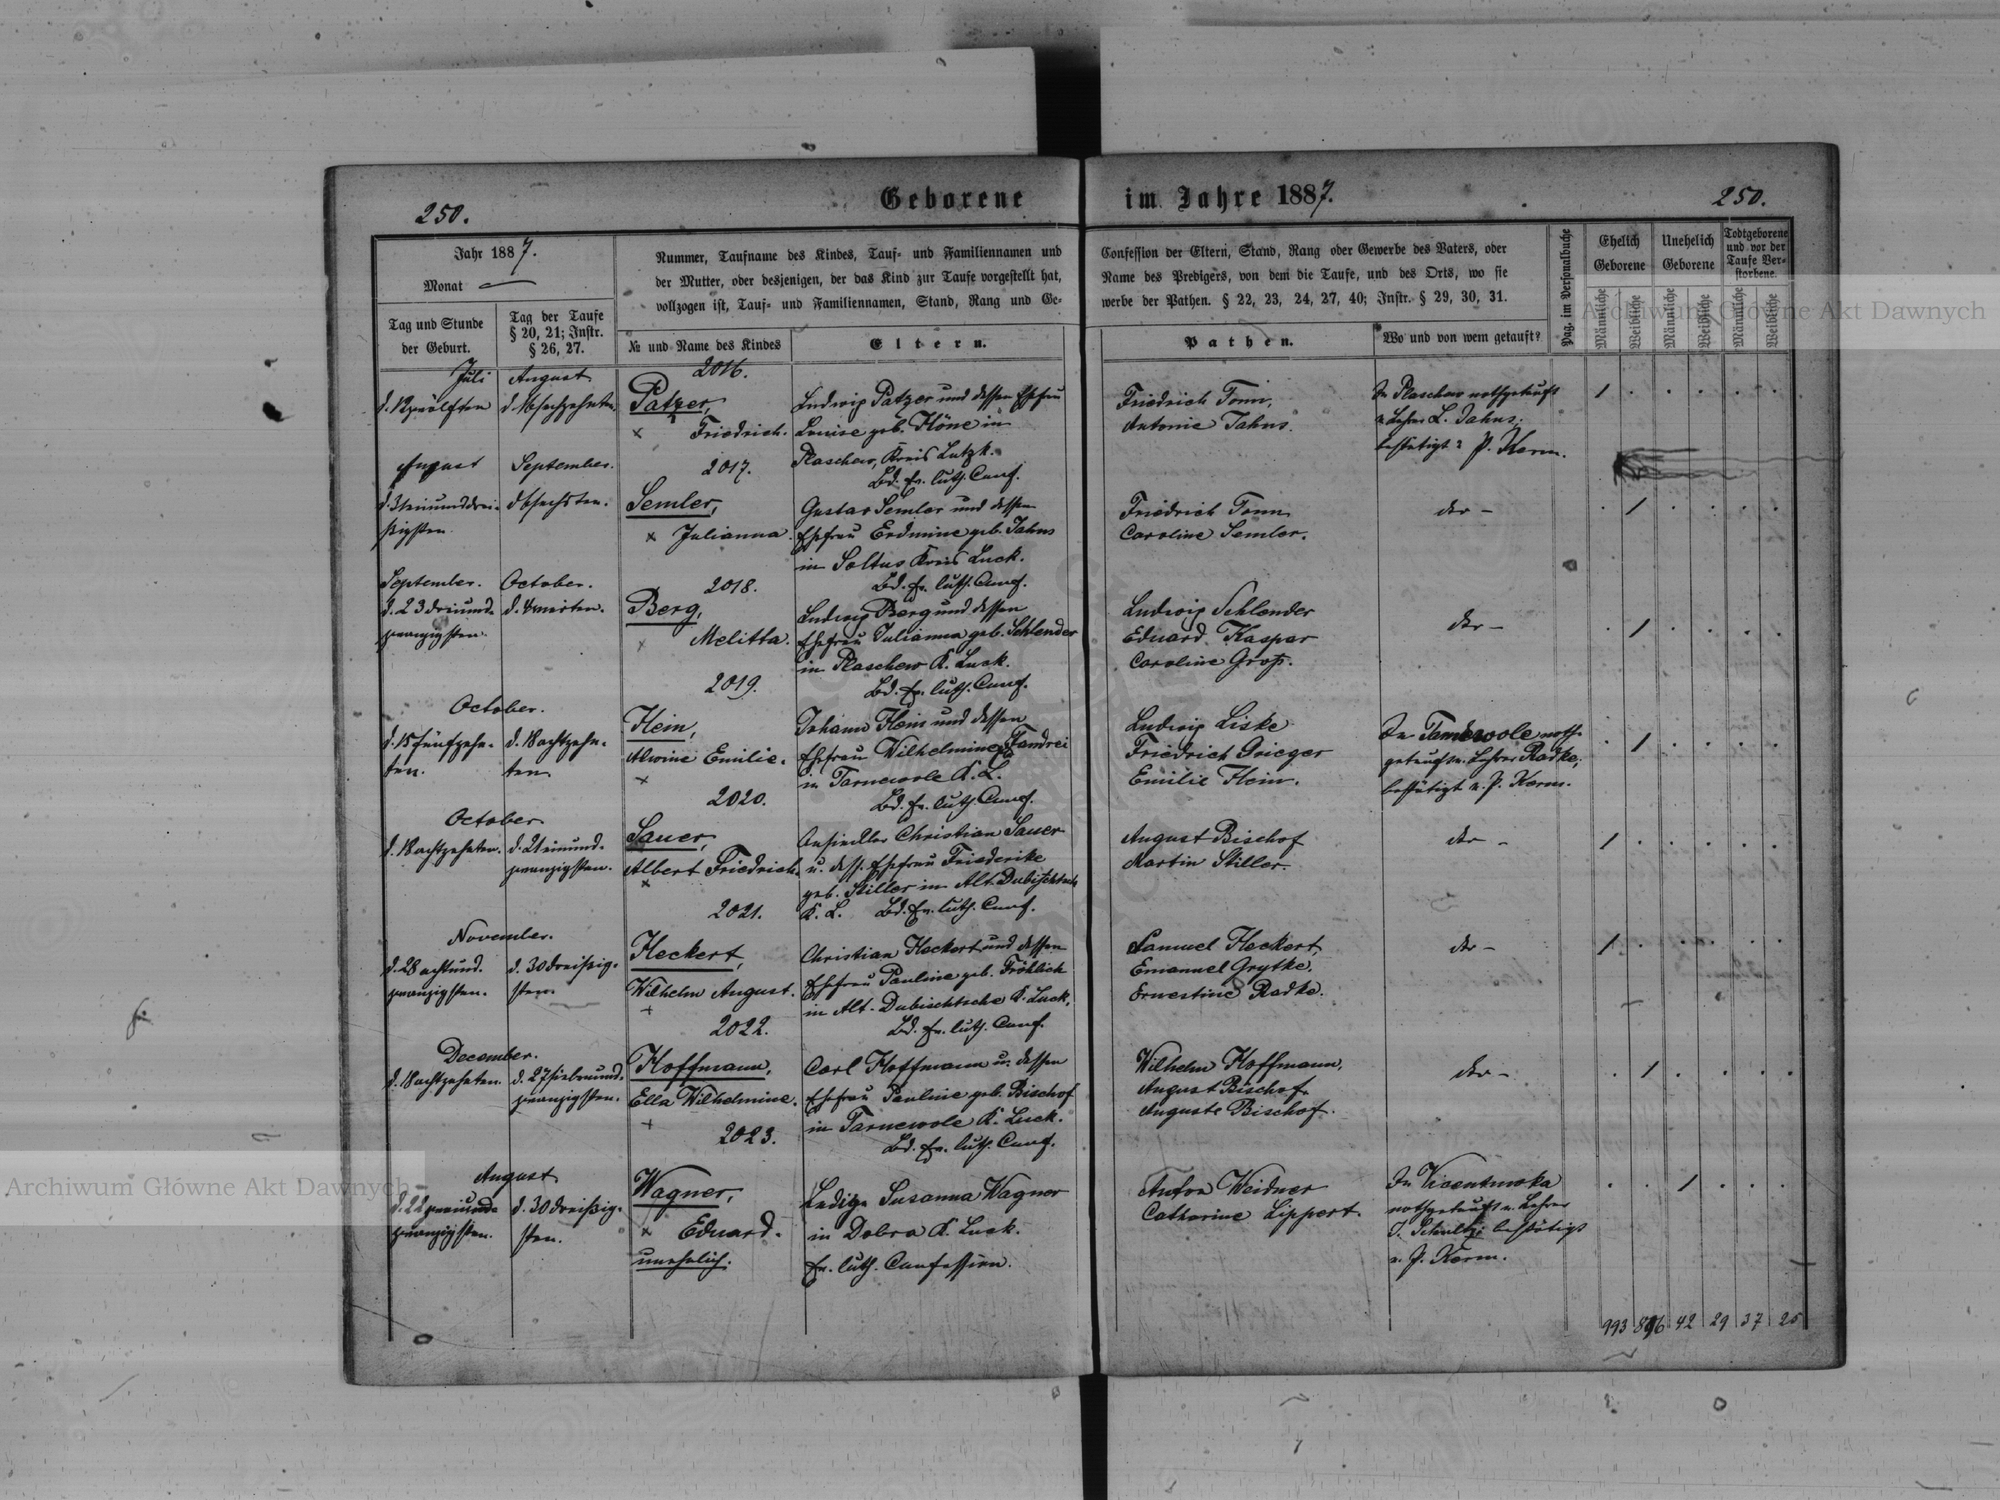 250.
Geborene im Jahre 1887.
250.
Jahr 1887.
Monat
Tag und Stunde
der Geburt.
Tag der Taufe
§ 20, 21; Instr.
§ 26, 27.
Nummer, Taufname des Kindes, Tauf- und Familiennamen und
der Mutter, oder desjenigen, der das Kind zur Taufe vorgestellt hat,
vollzogen ist, Tauf- und Familiennamen, Stand, Rang und Ge-
№ und Name des Kindes
Eltern.
Confession der Eltern, Stand, Rang oder Gewerbe des Vaters, oder
Name des Predigers, von dem die Taufe, und des Orts, wo sie
werbe der Pathen. § 22, 23, 24, 27, 40; Instr. § 29, 30, 31.
Pathen.
Wo und von wem getauft?
Pag. im Personalbuche
Ehelich
Geborene
Unehelich
Geborene
Todtgeborene
und vor der
Taufe Ver-
storbene.
Männliche
Weibliche
Männliche
Weibliche
Männliche
Weibliche
Juli
August
d. 12 zwölften
d. 16 sechzehnten
2016.
Patzer,
Friedrich.
Ludwig Patzer und dessen Ehefrau
Louise geb. Höne in
Plaschew, Kreis Lutzk.
Bd. Ev. luth. Conf.
Friedrich Tonn,
Antonie Jahns.
In Plaschew nothgetauft
v. Lehrer L. Jahns;
bestätigt v. P. Kerm.
August
September.
d. 31 einunddrei-
ßigsten.
d. 6 sechsten.
2017.
Semler,
Julianna.
Gustav Semler und dessen
Ehefrau Erdmine geb. Jahns
in Soltus Kreis Luck.
Bd. Ev. luth. Conf.
Friedrich Tonn
Caroline Semler.
der -
September.
October.
d. 23 dreiund-
zwanzigsten.
d. 4 vierten.
2018.
Berg,
Melitta.
Ludwig Berg und dessen
Ehefrau Julianna geb. Schlender
in Plaschew K. Luck.
Bd. Ev. luth. Conf.
Ludwig Schlender
Eduard Kaspar
Caroline Groß.
der -
October.
d. 15 fünfzehn-
ten.
d. 18 achtzehn-
ten
2019.
Hein,
Alwine Emilie.
Johann Hein und dessen
Ehefrau Wilhelmine g. Fandrei
in Tarnewole K. L.
Bd. Ev. luth. Conf.
Ludwig Liske
Friedrich Grieger
Emilie Hein.
In Tarnewole noth-
getauft v. Lehrer Radke;
bestätigt v. P. Kerm.
October
d. 18 achtzehnten.
d. 21 einund-
zwanzigsten.
2020.
Sauer,
Albert Friedrich.
Ansiedler Christian Sauer
u. dess. Ehefrau Friederike
geb. Stiller in Alt. Dubischtsche
K. L. Bd. Ev. luth. Conf.
August Bischof
Martin Stiller.
der -
November.
d. 28 achtund-
zwanzigsten.
d. 30 dreißig-
sten.
2021.
Heckert,
Wilhelm August.
Christian Heckert und dessen
Ehefrau Pauline geb. Fröhlich
in Alt-Dubischtsche K. Luck,
Bd. Ev. luth. Conf.
Samuel Heckert,
Emanuel Grytke,
Ernestine Radke.
der -
December.
d. 18 achtzehnten.
d. 27 siebenund-
zwanzigsten.
2022.
Hoffmann,
Ella Wilhelmine.
Carl Hoffmann u. dessen
Ehefrau Pauline geb. Bischof
in Tarnewole K. Luck.
Bd. Ev. luth. Conf.
Wilhelm Hoffmann,
August Bischof
Auguste Bischof.
der -
August
d. 22 zweiund-
zwanzigsten.
d. 30 dreißig-
sten.
2023.
Wagner,
Eduard.
unehelich.
Ledige Susanna Wagner
in Dobra K. Luck.
Ev. luth. Confession.
Anton Weidner
Catharine Lippert.
nothgetauft v. Lehrer
J. Schultz; bestätigt
v. P. Kerm.
993 896 42 29 37 25
Archiwum Główne Akt Dawnych
Archiwum Główne Akt Dawnych